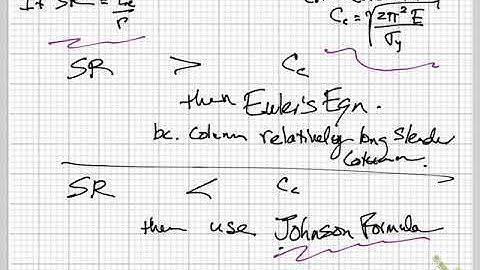 If SR = Le/r
Cc = √(2π²E/σy)
SR > Cc
then Euler's Eqn.
bc. column relatively long slender
column.
SR < Cc
then use Johnson Formula